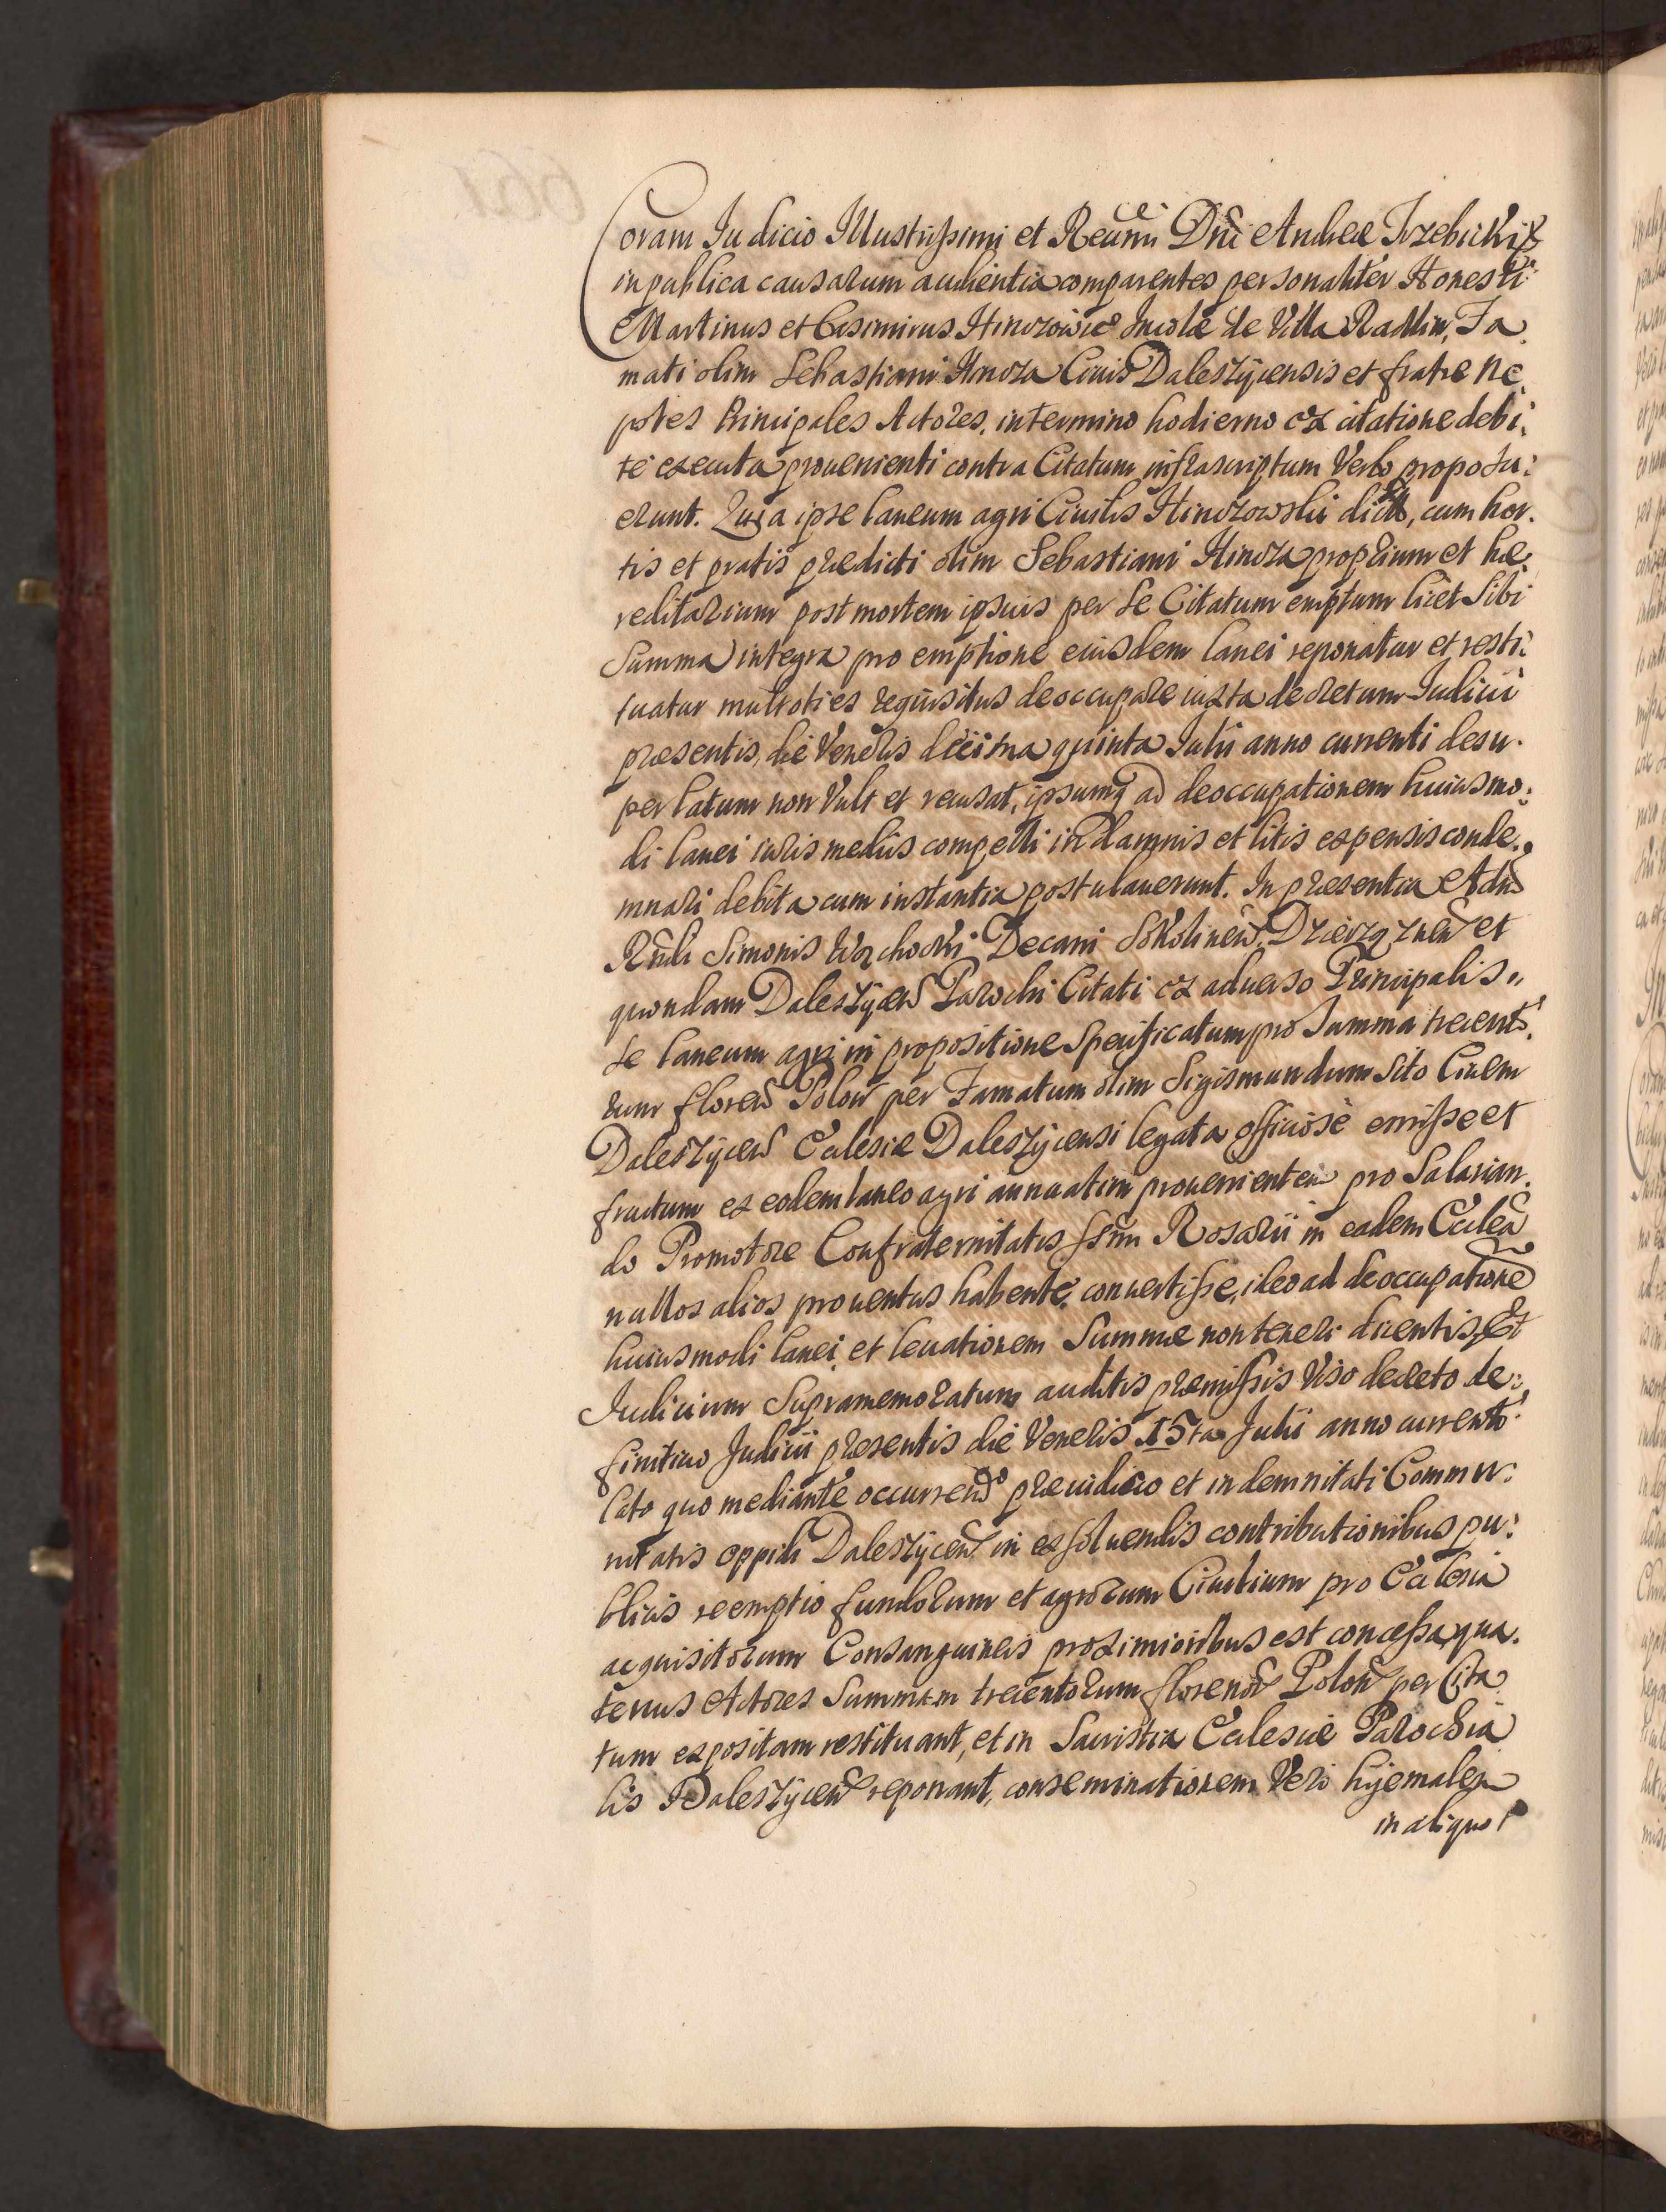 Coram Judicio Illustrissimi et Reverendissimi Dni Andreæ Trzebicki &
in publica causarum audientia comparentes personaliter Honesti
Martinus et Casimirus Hinczowicz Incolæ de Villa Radlin, Fa,
mati olim Sebastiani Hincza Civis Daleszÿcensis et fratre ne,
potes Principales Actores, in termino hodierno ex citatione debi,
te executa provenienti contra Citatum infrascriptum Verbo proposu:
erunt. Quia ipse laneum agri Civilis Hinczowski dict, cum hor.
tis et pratis prædicti olim Sebastiani Hincza proprium et hæ,
reditarium post mortem ipsuis per Se Citatum emptum licet Sibi
Summa integra pro emptione eiusdem lanei reponatur et resti:
tuatur multoties requisitus deoccupare iuxta decretum Judicii
præsentis, die Veneris decima quinta Julii anno currenti desu.
per latum non Vult et recusat, ipsumq ad deoccupationem huiusmo:
di lanei iuris mediis compelli in damnis et litis expensis conde.
mnari debita cum instantia postulaverunt. In præsentia Adm
Rndi Simonis Decani Sokolinen, et
quondam Daleszÿcen Parochi Citati ex adverso Principalis,,
se laneum agri in propositione Specificatum pro Summa trecent,
rum floren Polon per Famatum olim Sigismundum Sito Civem
Daleszÿcen Ecclesiæ Daleszÿcensi legata officiosè emisse et
fructum ex eodem laneo agri annuatim provenientem pro Salarian.
do Promotore Confraternitatis SSmi Rosarii in eadem Ecclea
nullos alios proventus habente, convertisse, ideo ad deoccupatione
huiusmodi lanei, et levationem Summæ non teneri dicentis, Et
Judicium Supramemoratum auditis præmissis Viso decreto de:
finitivo Judicii præsentis die Veneris 15ta Julii anno currento
lato quo mediante occurrendo præiudicio et indemnitati Commu:
nitatis oppidi Daleszÿcen in exsolvendis contributionibus pu:
blicis reemptio fundorum et agrorum Civilium pro Ecclesia
acquisitorum Consanguineis proximioribus est concessa, qua.
tenus Actores Summam trecentorum florenor Polon per Cita
tum expositam restituant, et in Sacristia Ecclesiæ Parochia
lis Daleszÿcen reponant, conseminationem Vero hÿemalem
in aliquo